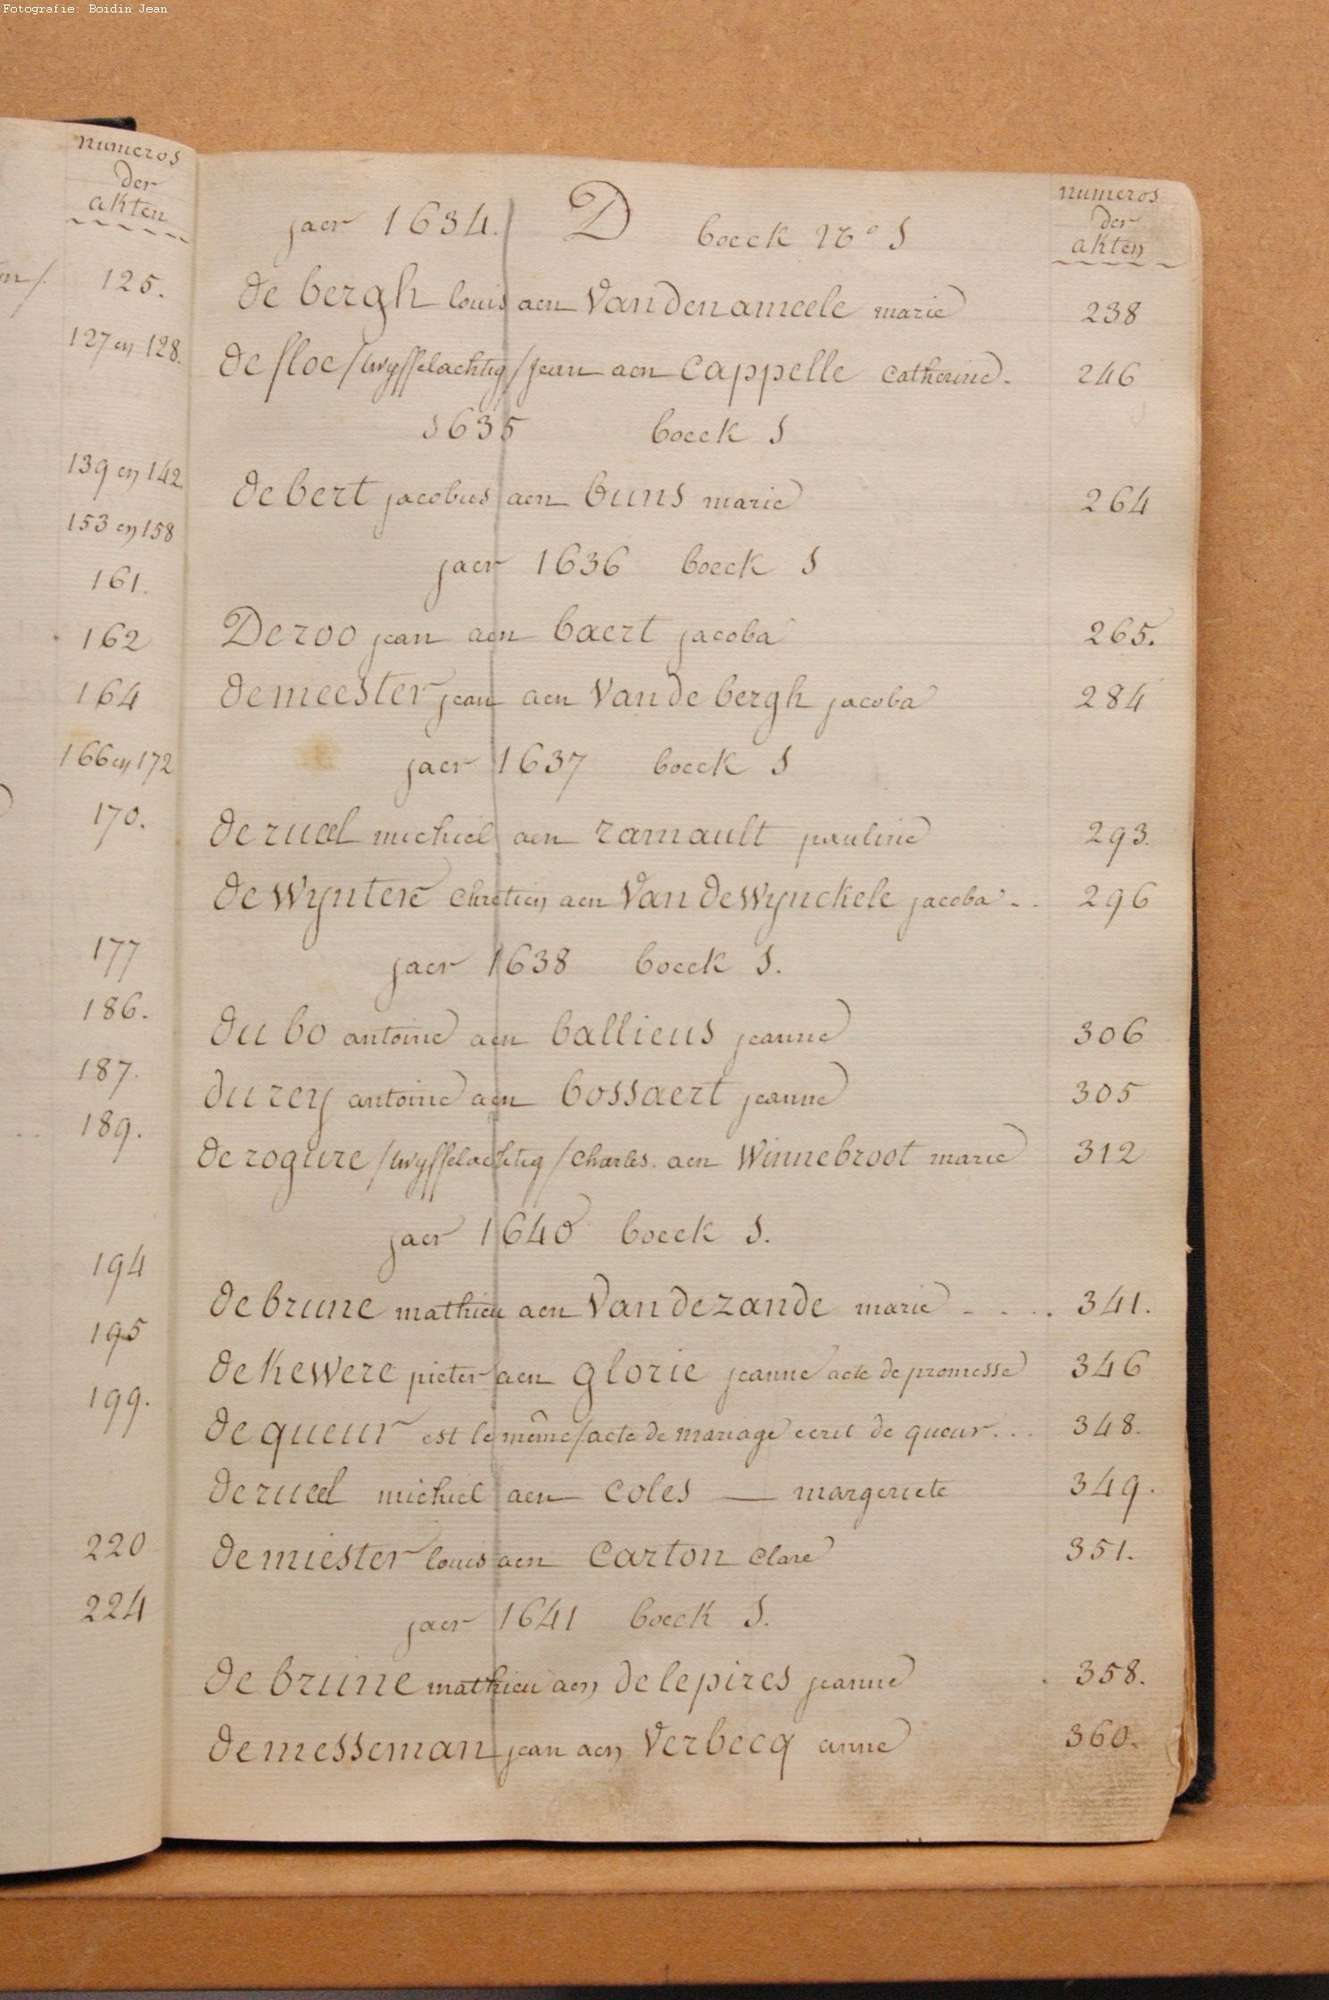 Fotografie: Boidin Jean
numeros
der
akten
125.
127 en 128.
139 en 142
153 en 158
161.
162
164
166 en 172
170.
177
186.
187.
189.
194
195
199.
220
224
jaer 1634. D boeck No 1
numeros
der
akten
de bergh louis aen Vandenameele marie 238
de floe /twyffelachtig/ jean aen cappelle catherine 246
1635 boeck 1
debert jacobus aen buns marie 264
jaer 1636 boeck 1
Deroo jean aen baert jacoba 265.
demeester jean aen Vande bergh jacoba 284
jaer 1637 boeck 1
deruel michiel aen ramault pauline 293.
dewyntere chretien aen Van dewynckele jacoba 296
jaer 1638 boeck 1.
du bo antoine aen ballieus jeanne 306
durey antoine aen bossaert jeanne 305
derogiere /twyffelachtig/ charles aen Winnebroot marie 312
jaer 1640 boeck 1.
debrune mathieu aen Vandezande marie 341.
dekewere pieter aen glorie jeanne acte de promesse 346
dequeur est le même /acte de mariage ecrit de queur 348.
deruel michiel aen coles margeriete 349.
demiester louis aen carton clare 351.
jaer 1641 boeck 1.
de brune mathieu aen delepires jeanne 358.
demesseman jean aen Verbecq anne 360.